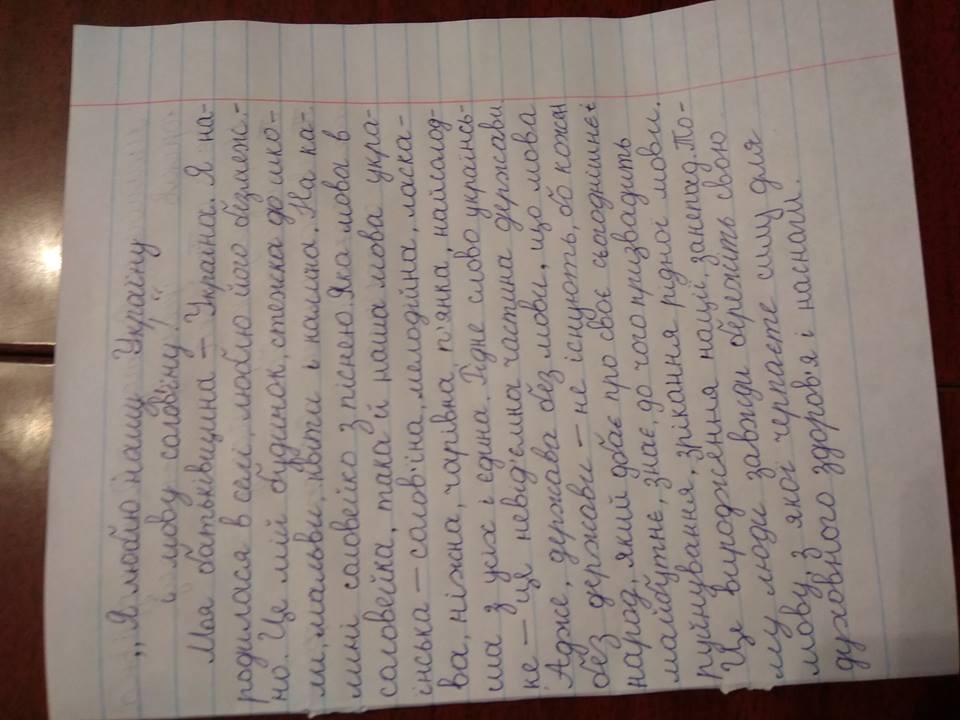 „Я люблю нашу Україну
і мову солов'їну!"
Моя батьківщина – Україна. Я на-
родилася в селі, люблю його безмеж-
но. Це мій будинок, стежка до шко-
ми, мальви, квіти і калина. На ка-
лині соловейко з піснею. Яка мова в
соловейка, така й наша мова укра-
їнська – солов'їна, мелодійна, ласка-
ва, ніжна, чарівна, п'янка, найсолод-
ша з усіх і єдина. Рідне слово українсь-
ке – це невід'ємна частина держави.
Адже, держава без мови, що мова
без держави – не існують, бо кожен
народ, який дбає про своє сьогоднішнє і
майбутнє, знає, до чого призводить
руйнування, зрікання рідної мови.
Це виродження нації, занепад. То-
му люди завжди бережіть свою
мову, з якої черпаєте силу для
духовного здоров'я і наснаги.